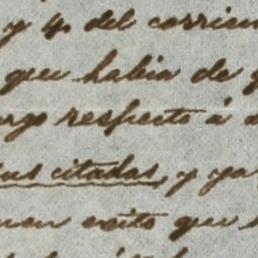 y 4 del corrien
que habia de
argo respecto á
sus citadas, y ya
buen exito que